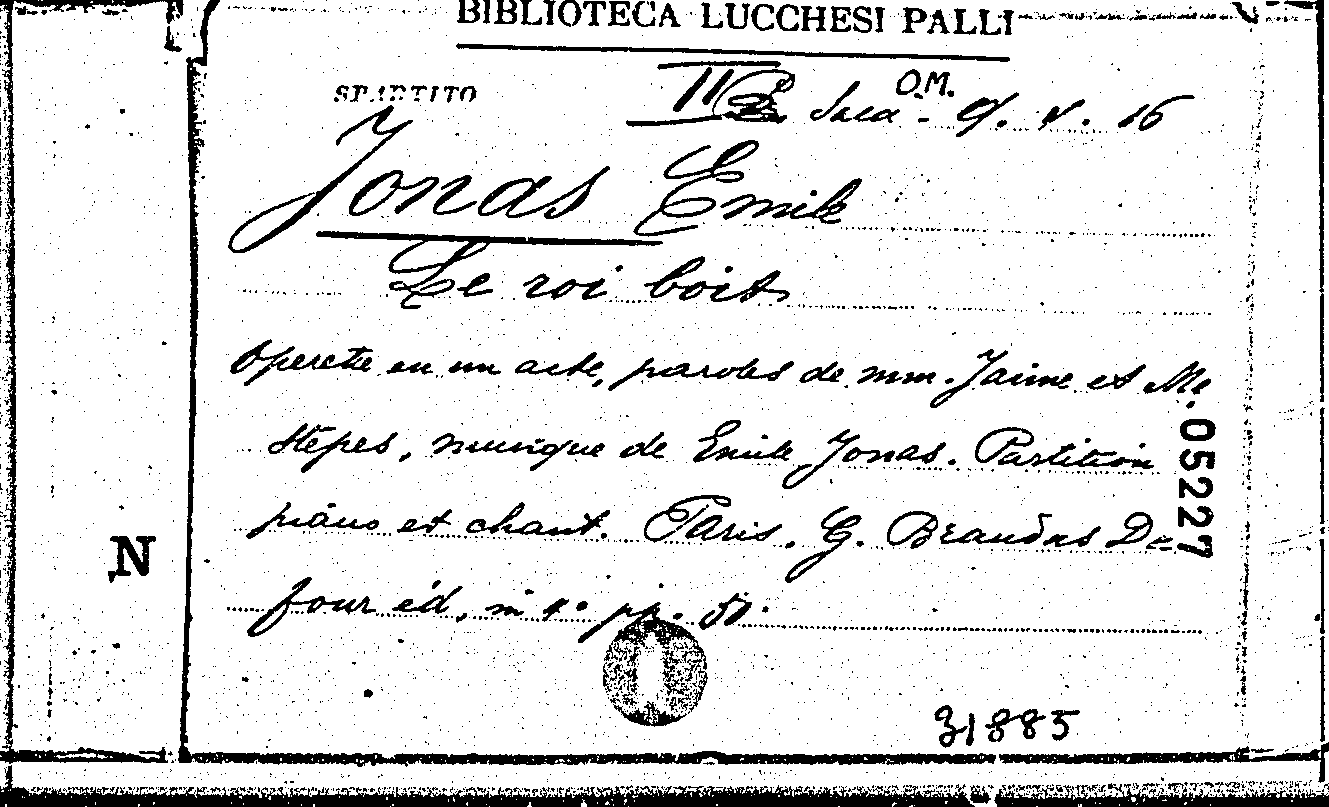 BIBLIOTECA LUCCHESI PALLI
SPARTITO
O.M.
Jonas Emile
Le roi boit
Operete en un acte, paroles de mm. Jaime et Me
stépes, musique de Emile Jonas. Partition
piano et chant. Paris, G. Brandus Du
four éd, in 4° pp. 51.
05227
N
31885